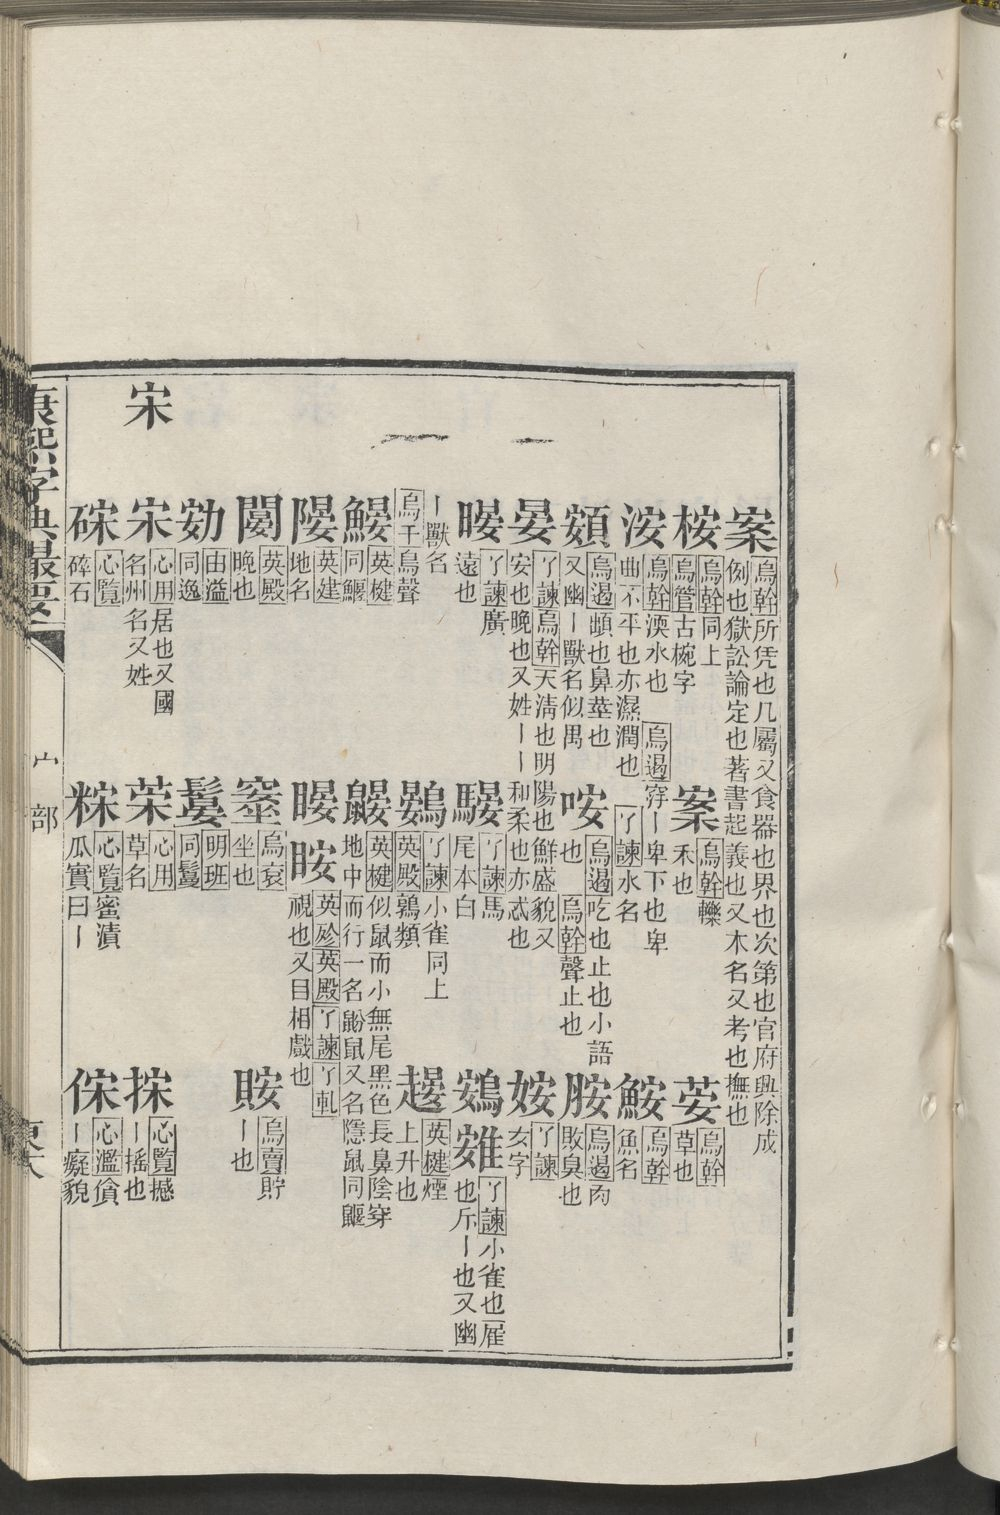 案 烏幹所凭也几屬又食器也界也次第也官府興除成
例也獄訟論定也著書起義也又木名又考也撫也
桉 烏幹同上
烏管古椀字
案 烏幹轢
禾也
荌 烏幹
草也
洝 烏幹渜水也 烏遏洊丨卑下也卑
曲不平也亦濕潤也 了諫水名
鮟 烏幹
魚名
頞 烏遏䪼也鼻莖也
又幽丨獸名似禺
咹 烏遏吃也止也小語
也 烏幹聲止也
胺 烏遏肉
敗臭也
晏 了諫烏幹天淸也明陽也鮮盛貌又
安也晚也又姓丨丨和柔也亦忒也
姲 了諫
女字
曣 了諫廣
遠也
騴 了諫馬
尾本白
鴳 䳺 了諫小雀也雇
也斥丨也又幽
丨獸名
烏干鳥聲
鷃 了諫小雀同上
英殿鶉類
䞁 英楗煙
上升也
鰋 英楗
同鰋
鼴 英楗似鼠而小無尾黑色長鼻陰穿
地中而行一名鼢鼠又名隱鼠同鼹
隁 英建
地名
䁙 英殄英殿了諫了軋
視也又目相戲也
英殿
晚也
烏袞
坐也
烏賣貯
丨也
由溢
同逸
明班
同鬘
宋
宋 心用居也又國
名州名又姓
心用
草名
心覽撼
丨搖也
心覽
碎石
心覽蜜漬
瓜實曰丨
心濫㑋
丨癡貌
康熙字典最要
宀部